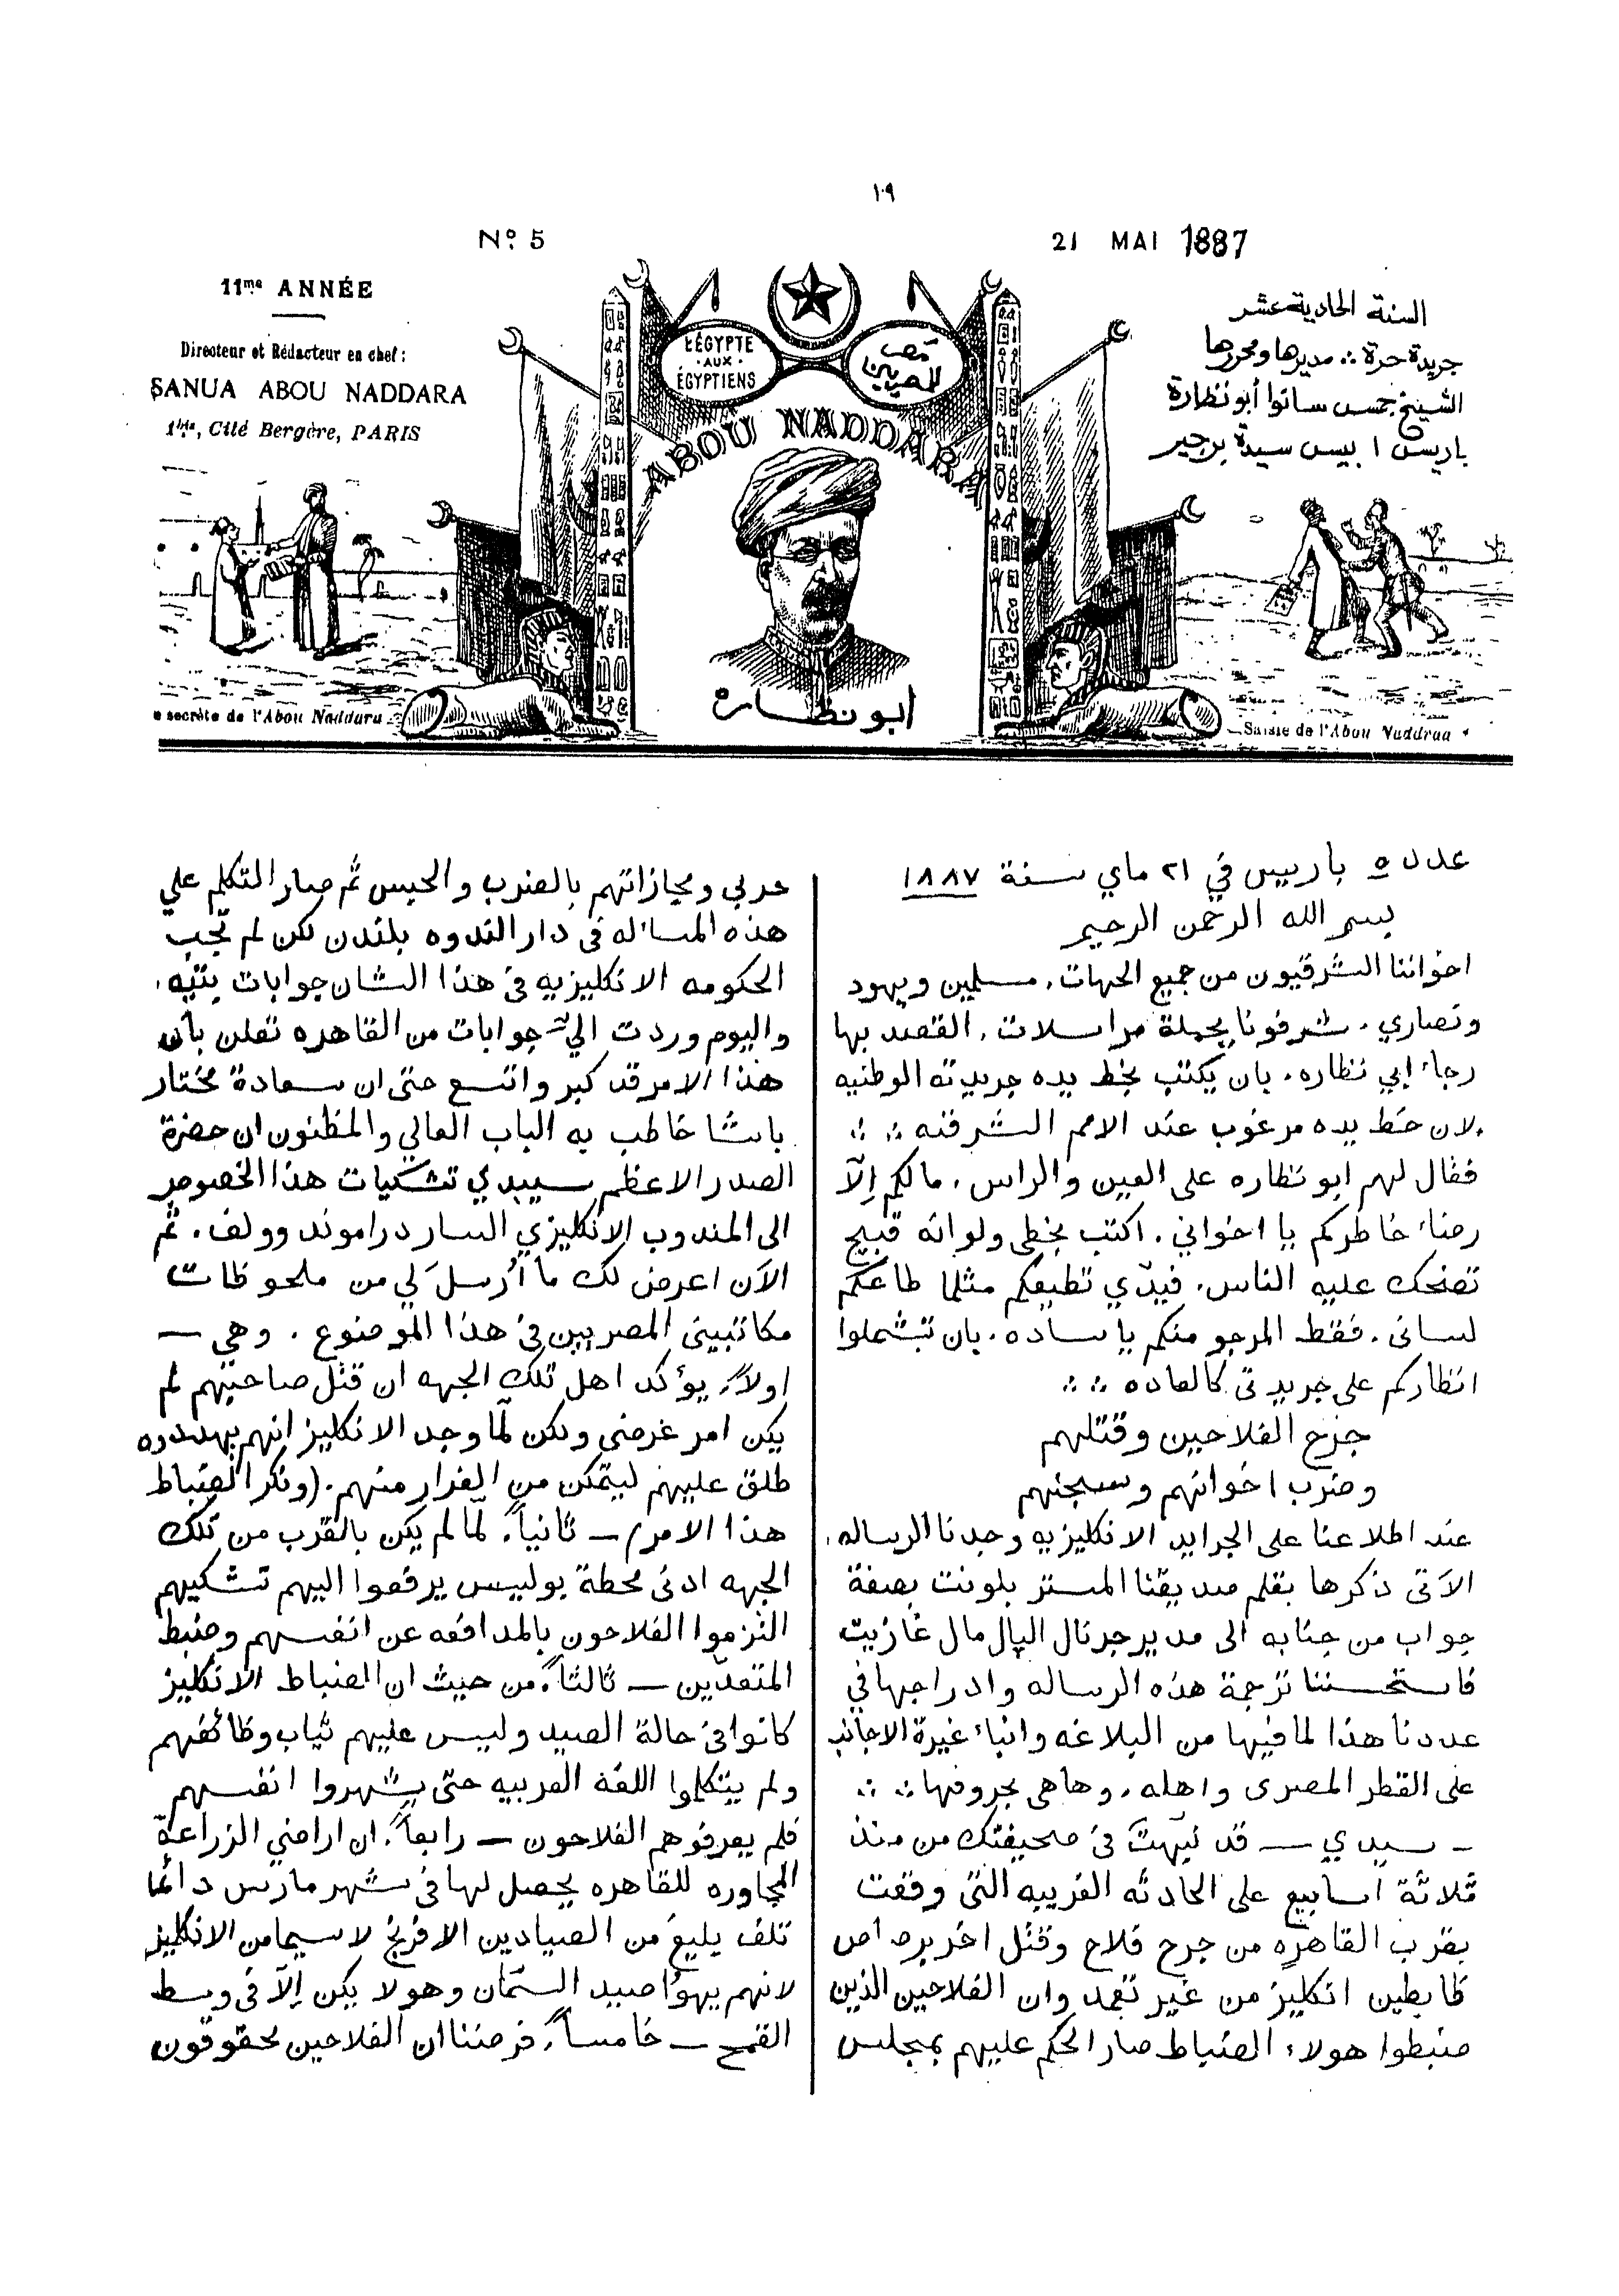 ١٠٩
Nº 5
21 MAI 1887
11me ANNÉE
Directeur et Rédacteur en chef:
SANUA ABOU NADDARA
Cité Bergère, PARIS
السنة الحادية عشر
جريدة حرة ∴ مديرها ومحررها
الشيخ جمس سانوا أبو نظارة
باريس ١ بيس سيدة برجير
L'ÉGYPTE
AUX
ÉGYPTIENS
مصر
للمصريين
ABOU NADDARA
ابو نظاره
e secrète de l'Abou Naddara
Saisie de l'Abou Naddraa
عدد ٥ باريس في ٢١ ماي سنة ١٨٨٧
بسم الله الرحمن الرحيم
اخواننا الشرقيون من جميع الجهات، مسلمين ويهود
ونصاري، شرفونا بجملة مراسلات، القصد بها
رجاء ابي نظاره، بان يكتب بخط يده جريدته الوطنيه
لان خط يده مرغوب عند الامم الشرقيه ∴ ∴
فقال لهم ابو نظاره على العين والراس، مالكم إلّا
رضاء خاطركم يا اخواني، اكتب بخطي ولو انه قبيح
تضحك عليه الناس، فيدّي تطيعكم مثلما طاعكم
لساني، فقط المرجو منكم يا ساده، بان تشملوا
انظاركم على جريدتي كالعاده ∴ ∴
جرح الفلاحين وقتلهم
وضرب اخوانهم وسجنهم
عند اطلاعنا على الجرايد الانكليزيه وجدنا الرساله
الآتي ذكرها بقلم صديقنا المستر بلونت بصفة
جواب من جنابه الى مدير جرنال البال مال غازيت
فاستحسننا ترجمة هذه الرساله وادراجها في
عددنا هذا لما فيها من البلاغه وانباء غيرة الاجانب
على القطر المصرى واهله، وهاهى بحروفها ∴ ∴
ـ سيدي ـ قد نبّهت في صحيفتك من منذ
ثلاثة اسابيع على الحادثه الغريبه التي وقعت
بقرب القاهره من جرح فلاح وقتل اخر برصاص
ظابطين انكليز من غير تعمد وان الفلاحين الذين
ضبطوا هولاء الضباط صار الحكم عليهم بمجلس
حربي ومجازاتهم بالضرب والحبس ثم صار التكلم علي
هذه المساله في دار الندوه بلندن لكن لم تجب
الحكومه الانكليزيه في هذا الشان جوابات بيّنه،
واليوم وردت اليّ جوابات من القاهره تعلن بأن
هذا الامر قد كبر واتسع حتى ان سعادة مختار
باشا خاطب به الباب العالي والمظنون ان حضرة
الصدر الاعظم سيبدي تشكيات هذا الخصوص
الى المندوب الانكليزي السار دراموند وولف، ثم
الآن اعرض لك ما أُرسلَ لي من ملحوظات
مكاتبيني المصريين في هذا الموضوع، وهي ـ
اولاً، يؤكد اهل تلك الجهه ان قتل صاحبهم لم
يكن امر عرضي ولكن لمّا وجد الانكليز انهم يهددوه
طلق عليهم ليتمكن من الفرار منهم، (ونكر الضباط
هذا الامر) ـ ثانياً، لمّا لم يكن بالقرب من تلك
الجهه ادنى محطة بوليس يرفعوا اليهم تشكيهم
التزموا الفلاحون بالمدافعه عن انفسهم وضبط
المتعدّين ـ ثالثاً، من حيث ان الضباط الانكليز
كانوا في حالة الصيد وليس عليهم ثياب وظائفهم
ولم يتكلموا اللغة العربيه حتى يشهروا انفسهم
فلم يعرفوهم الفلاحون ـ رابعاً، ان اراضي الزراعة
المجاوره للقاهره يحصل لها في شهر مارتس دائماً
تلف بليغ من الصيادين الافرنج لا سيما من الانكليز
لانهم يهوا صيد السمّان وهو لا يكن إلّا في وسط
القمح ـ خامساً، فرضنا ان الفلاحين محقوقون